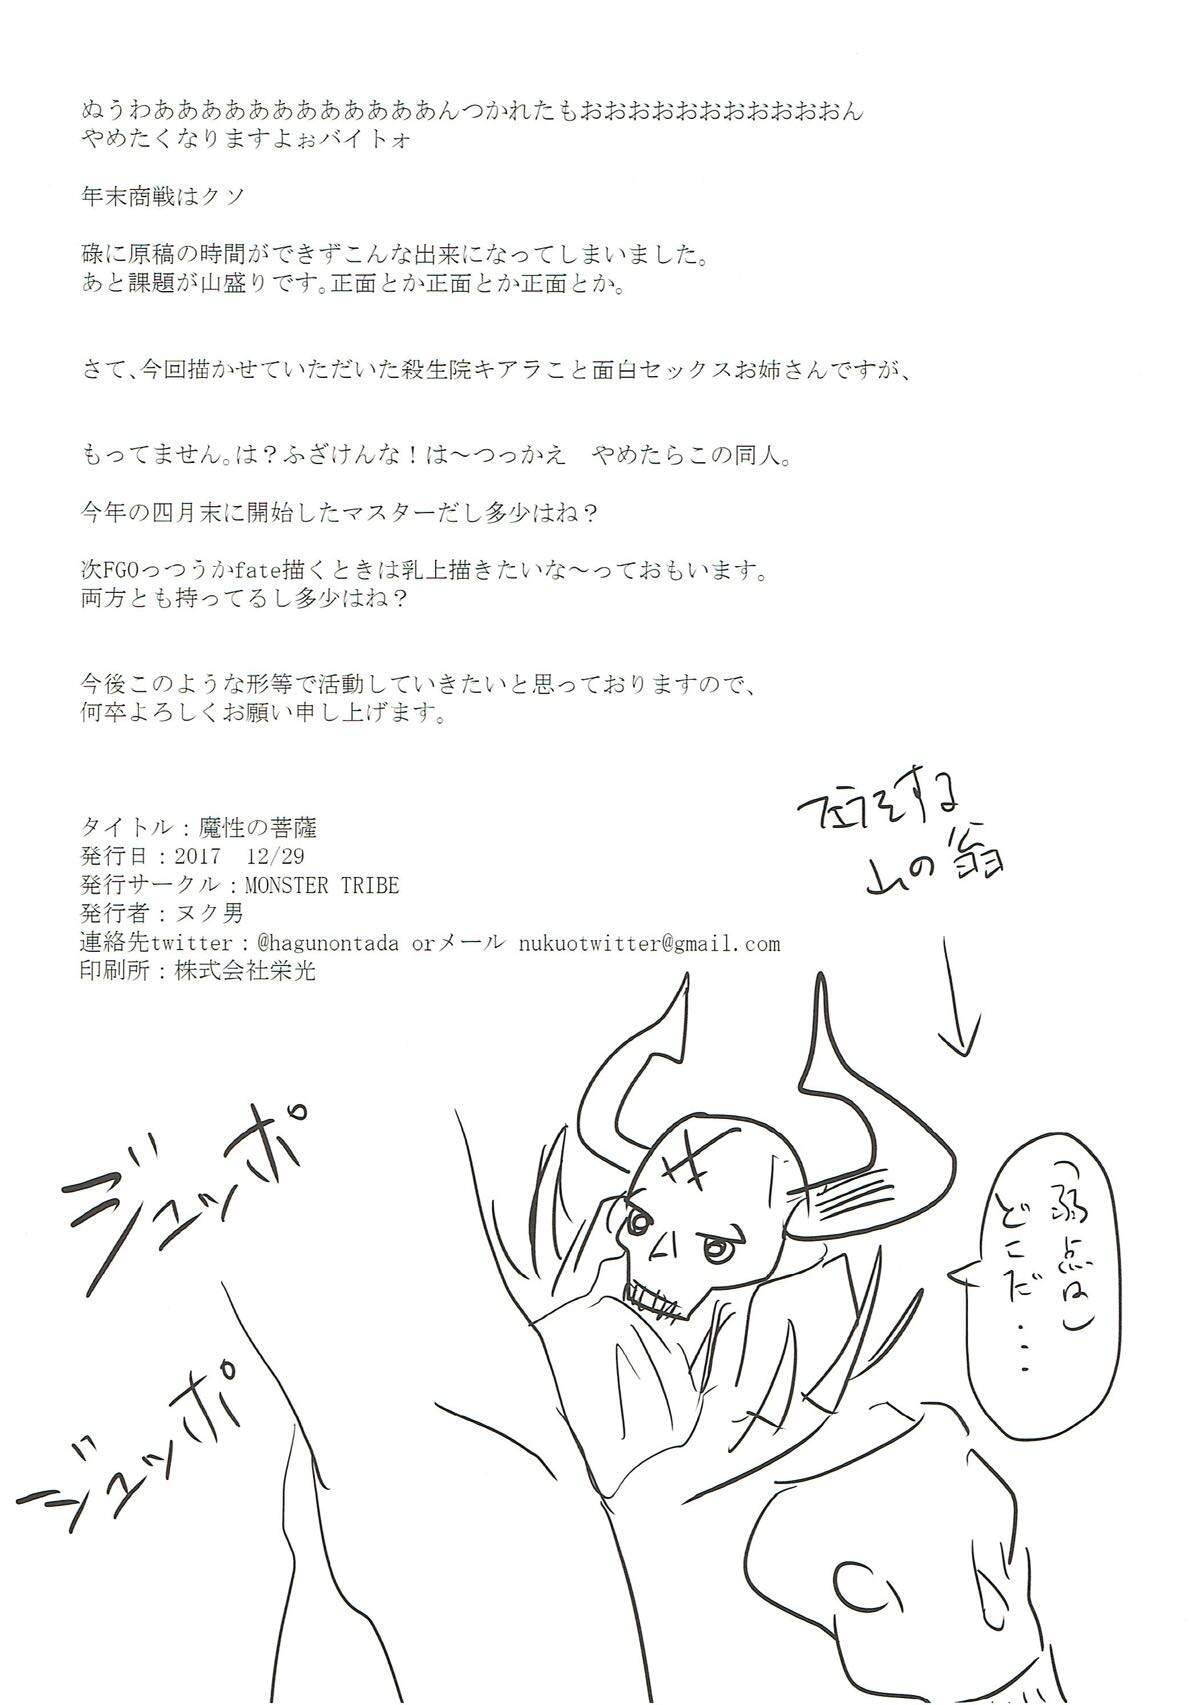 ぬうわあああああああああああああんつかれたもおおおおおおおおおおおおん
やめたくなりますよぉバイトォ
年末商戦はクソ
碌に原稿の時間ができずこんな出来になってしまいました。
あと課題が山盛りです。正面とか正面とか正面とか。
さて、今回描かせていただいた殺生院キアラこと面白セックスお姉さんですが、
もってません。は？ふざけんな！は～つっかえ　やめたらこの同人。
今年の四月末に開始したマスターだし多少はね？
次FGOっつうかfate描くときは乳上描きたいな～っておもいます。
両方とも持ってるし多少はね？
今後このような形等で活動していきたいと思っておりますので、
何卒よろしくお願い申し上げます。
タイトル：魔性の菩薩
発行日：2017　12/29
発行サークル：MONSTER TRIBE
発行者：ヌク男
連絡先twitter：@hagunontada orメール nukuotwitter@gmail.com
印刷所：株式会社栄光
フェラをする
山の翁
ジュッポ
（弱点は）
どこだ・・・
ジュッポ